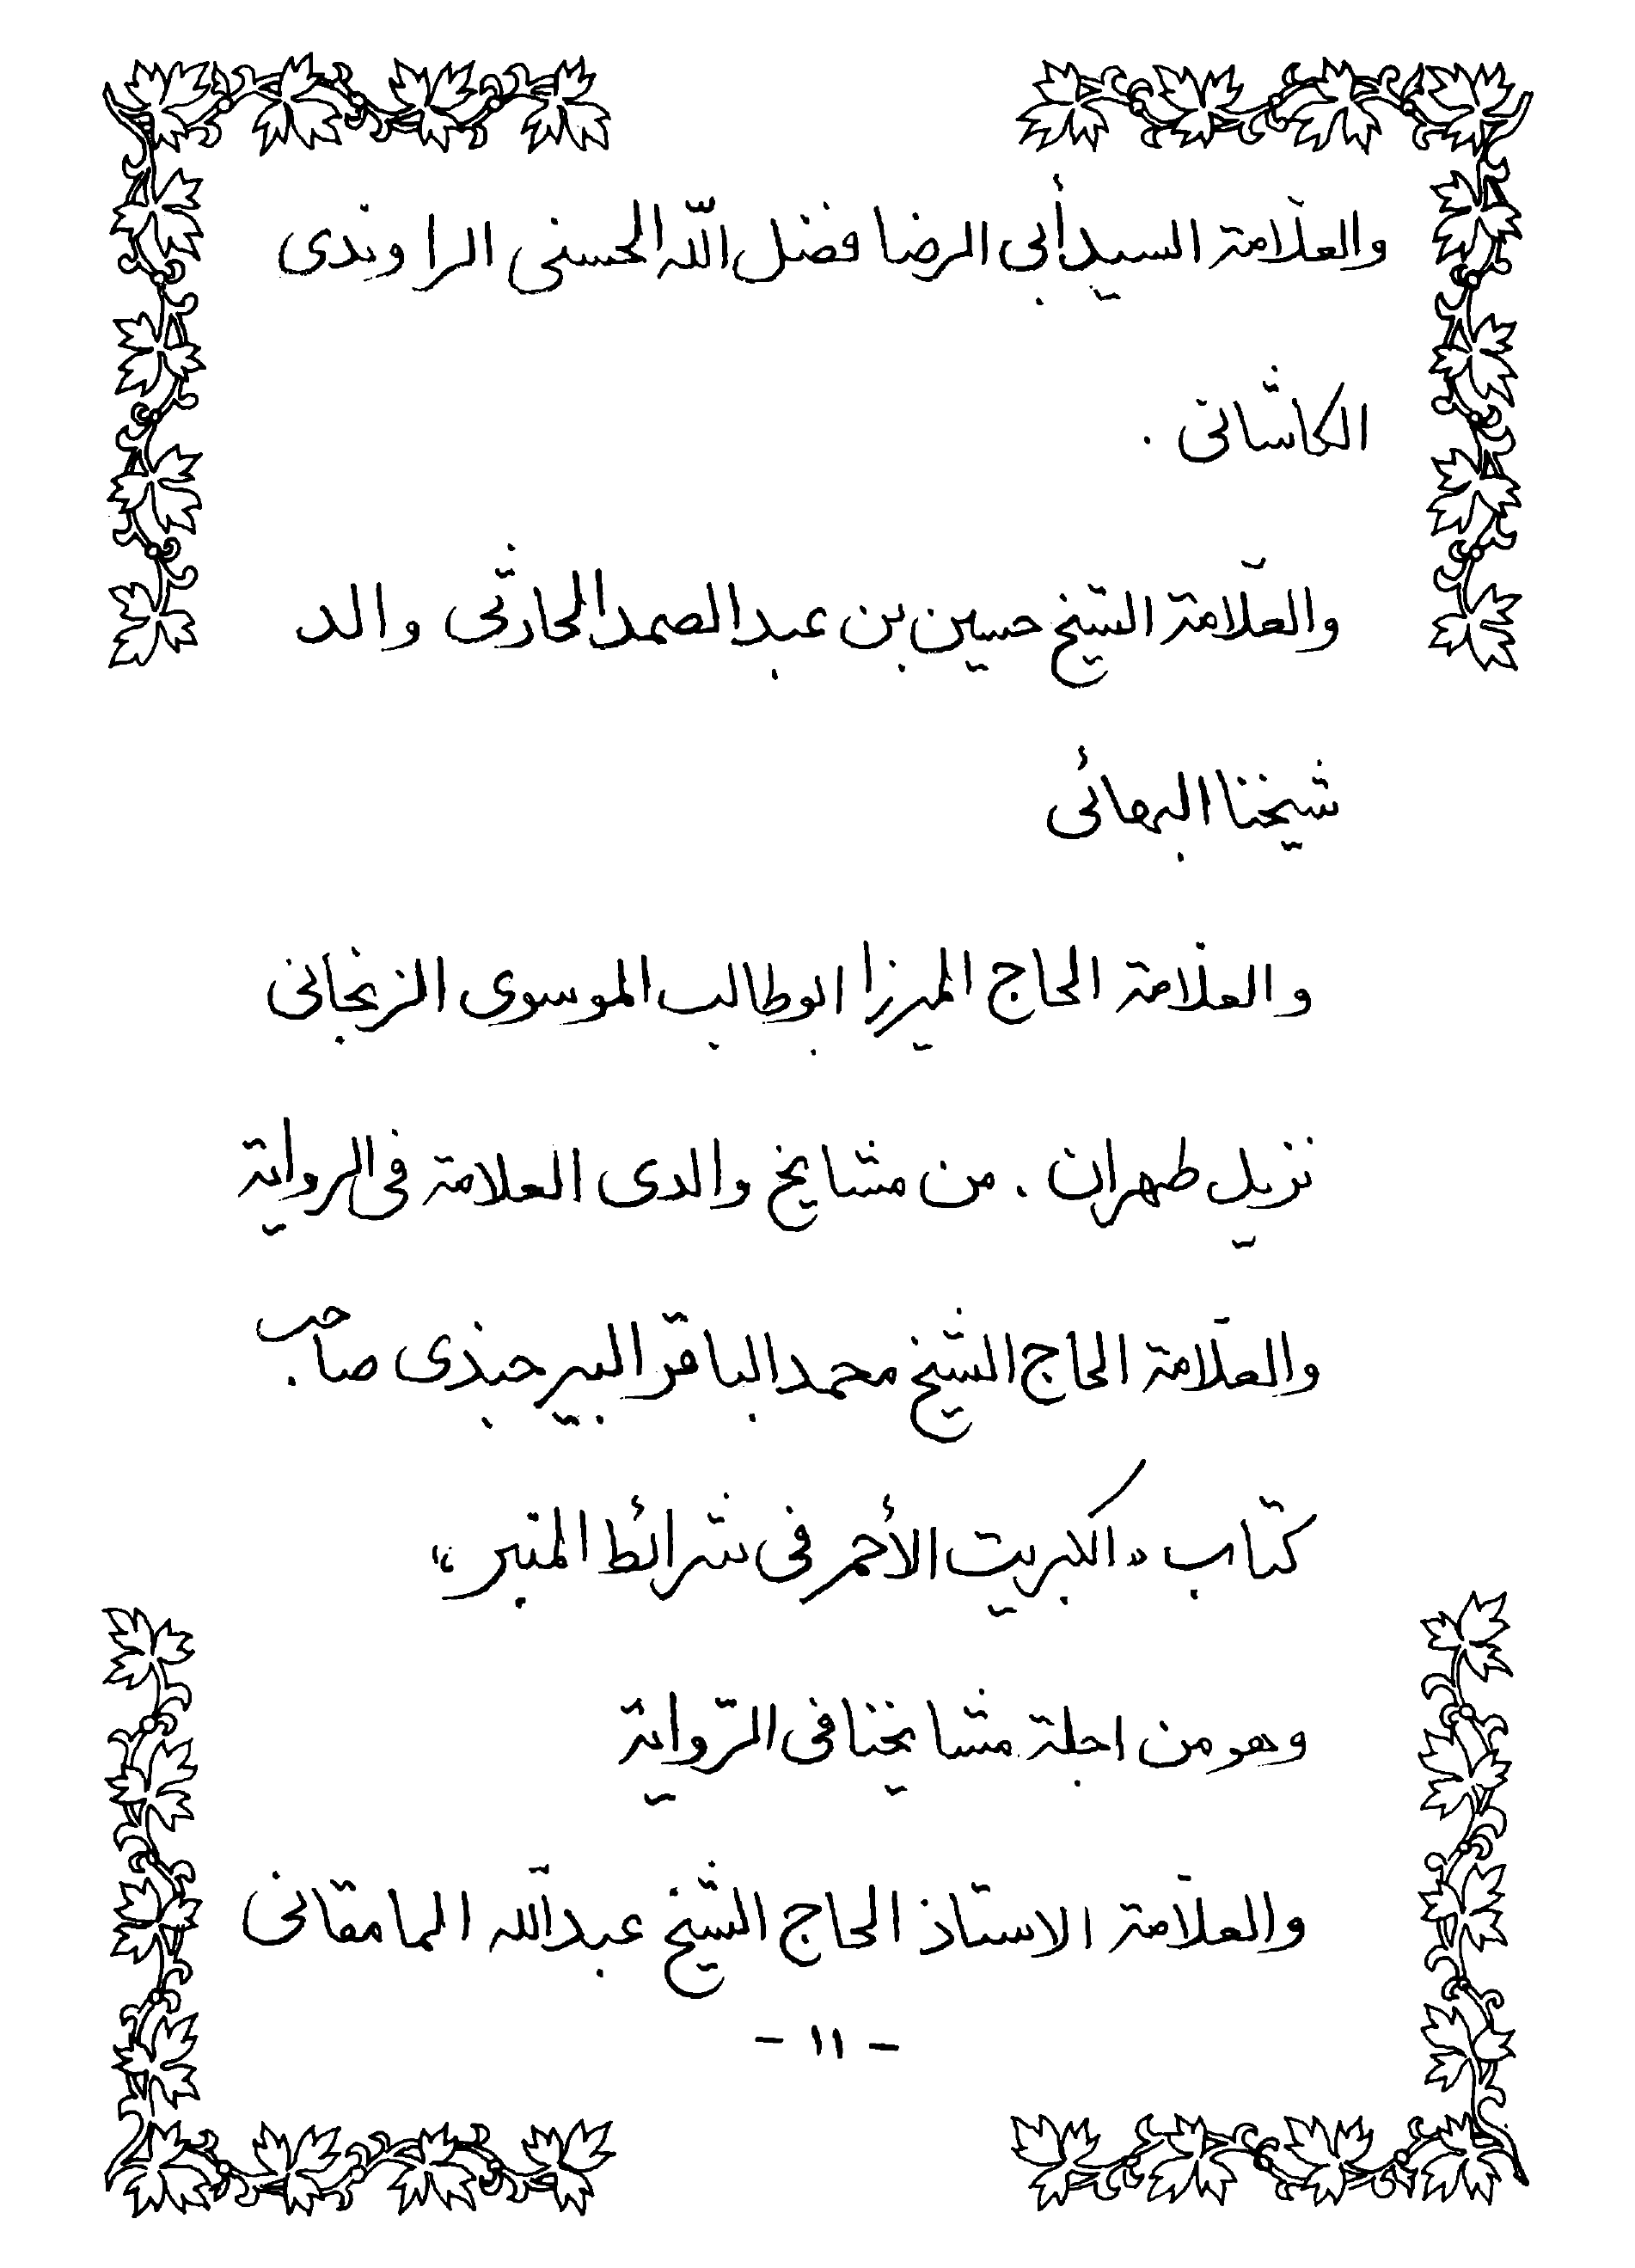 والعلّامة السيد أبي الرضا فضل اللّه الحسنى الراوندى
الكاشانى .
والعلّامة الشيخ حسين بن عبد الصمد الحارثى والد
شيخنا البهائى
والعلّامة الحاج الميرزا ابوطالب الموسوى الزنجانى
نزيل طهران . من مشايخ والدى العلامة فى الرواية
والعلّامة الحاج الشيخ محمد الباقر البيرجندى صاحب
كتاب «الكبريت الأحمر فى شرائط المنبر»
وهو من اجلة مشايخنا فى الرّواية
والعلّامة الاستاذ الحاج الشيخ عبد اللّه المامقانى
- ١١ -